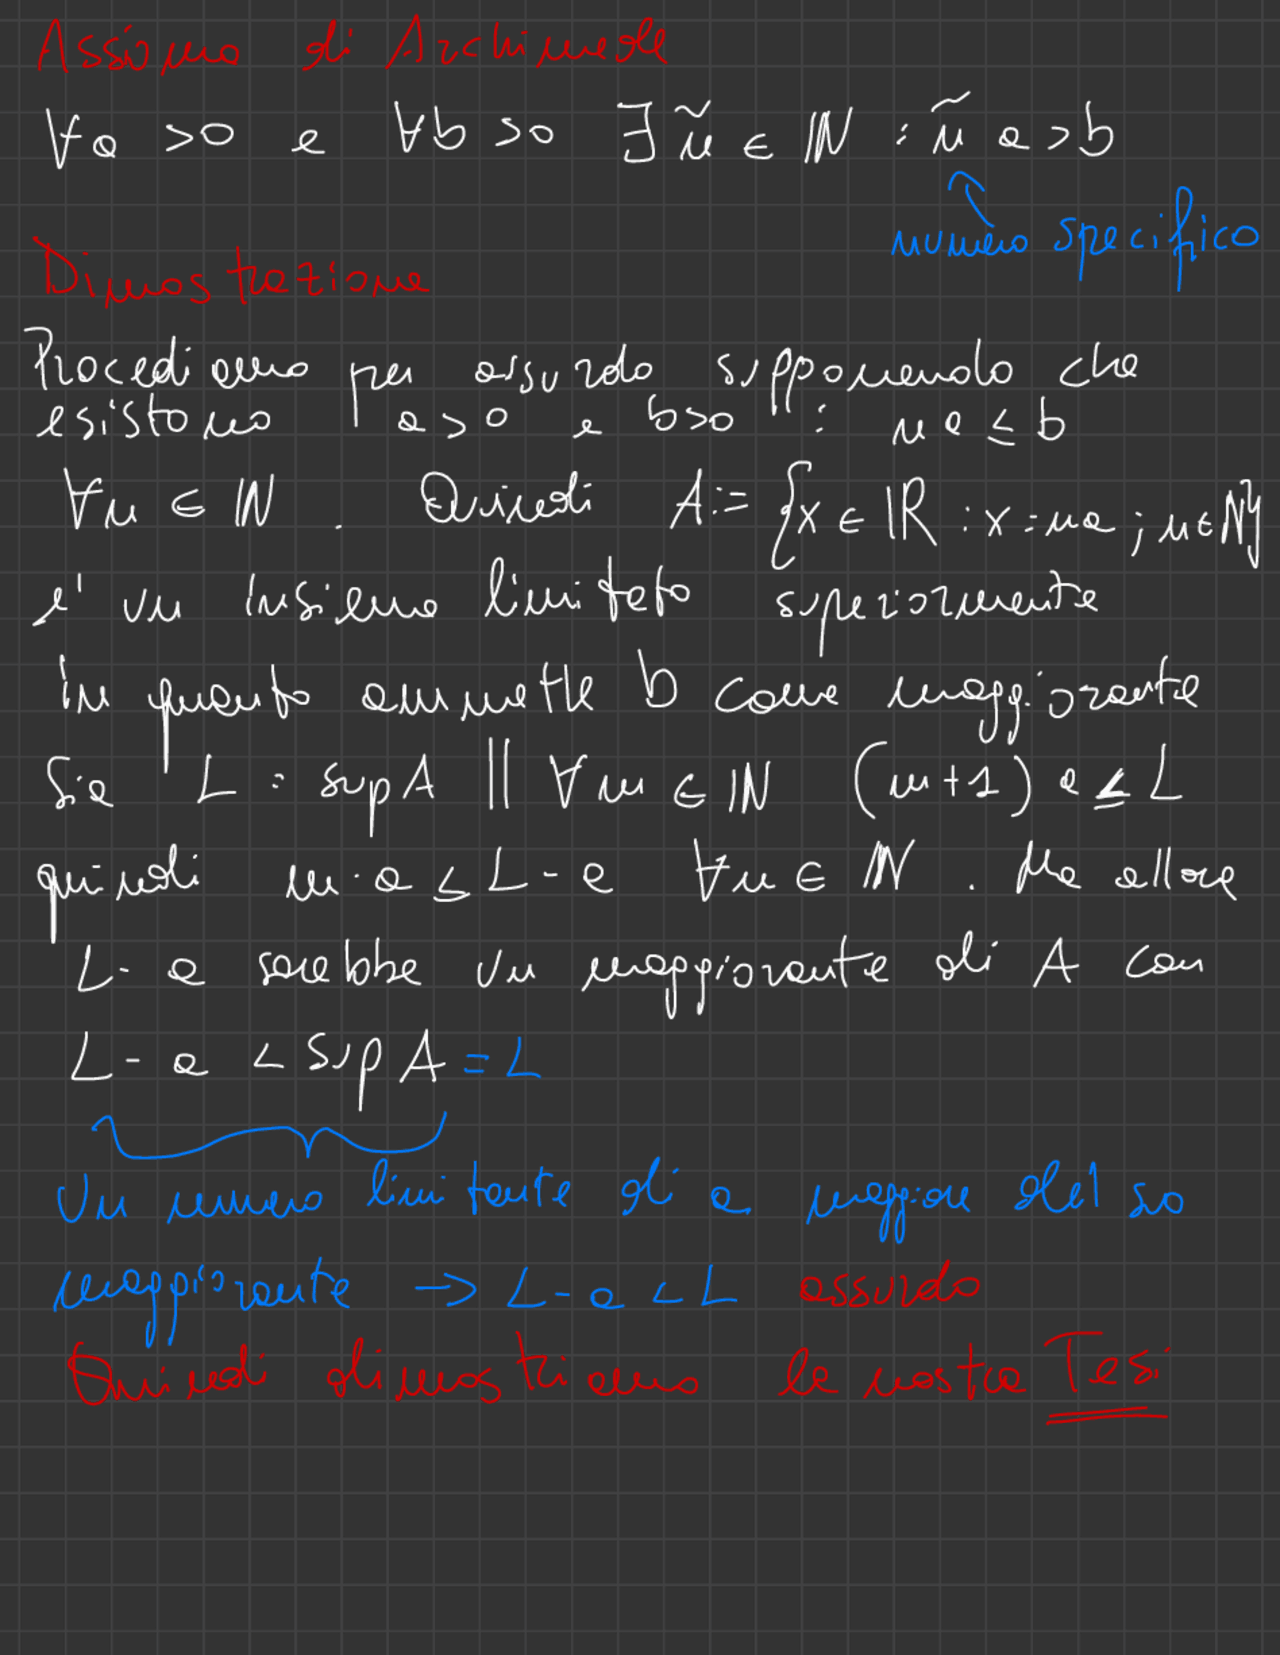 Assioma di Archimede
∀a >0 e ∀b >0 ∃ñ ∈ ℕ : ñ a > b
numero specifico
Dimostrazione
Procediamo per assurdo supponendo che
esistono a>0 e b>0 : n a ≤ b
∀n ∈ ℕ . Quindi A := {x ∈ ℝ : x = na ; n ∈ ℕ}
e' un insieme limitato superiormente
in quanto ammette b come maggiorante
Sia L = sup A || ∀ m ∈ ℕ (m+1) a ≤ L
quindi m·a ≤ L - a ∀n ∈ ℕ . Ma allora
L - a sarebbe un maggiorante di A con
L - a < sup A = L
Un numero limitante di a maggiore del suo
maggiorante → L - a < L assurdo
Quindi dimostriamo la nostra Tesi